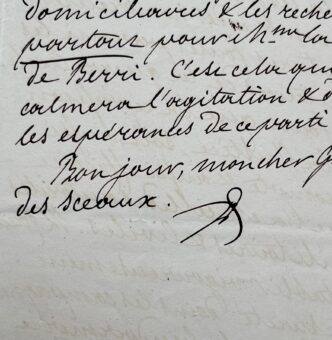 domiciliaires & les reche
partout pour
de Berri. C'est cela qui
calmera l'agitation &
les espérances de ce parti
Bonjour, mon cher G
des sceaux.